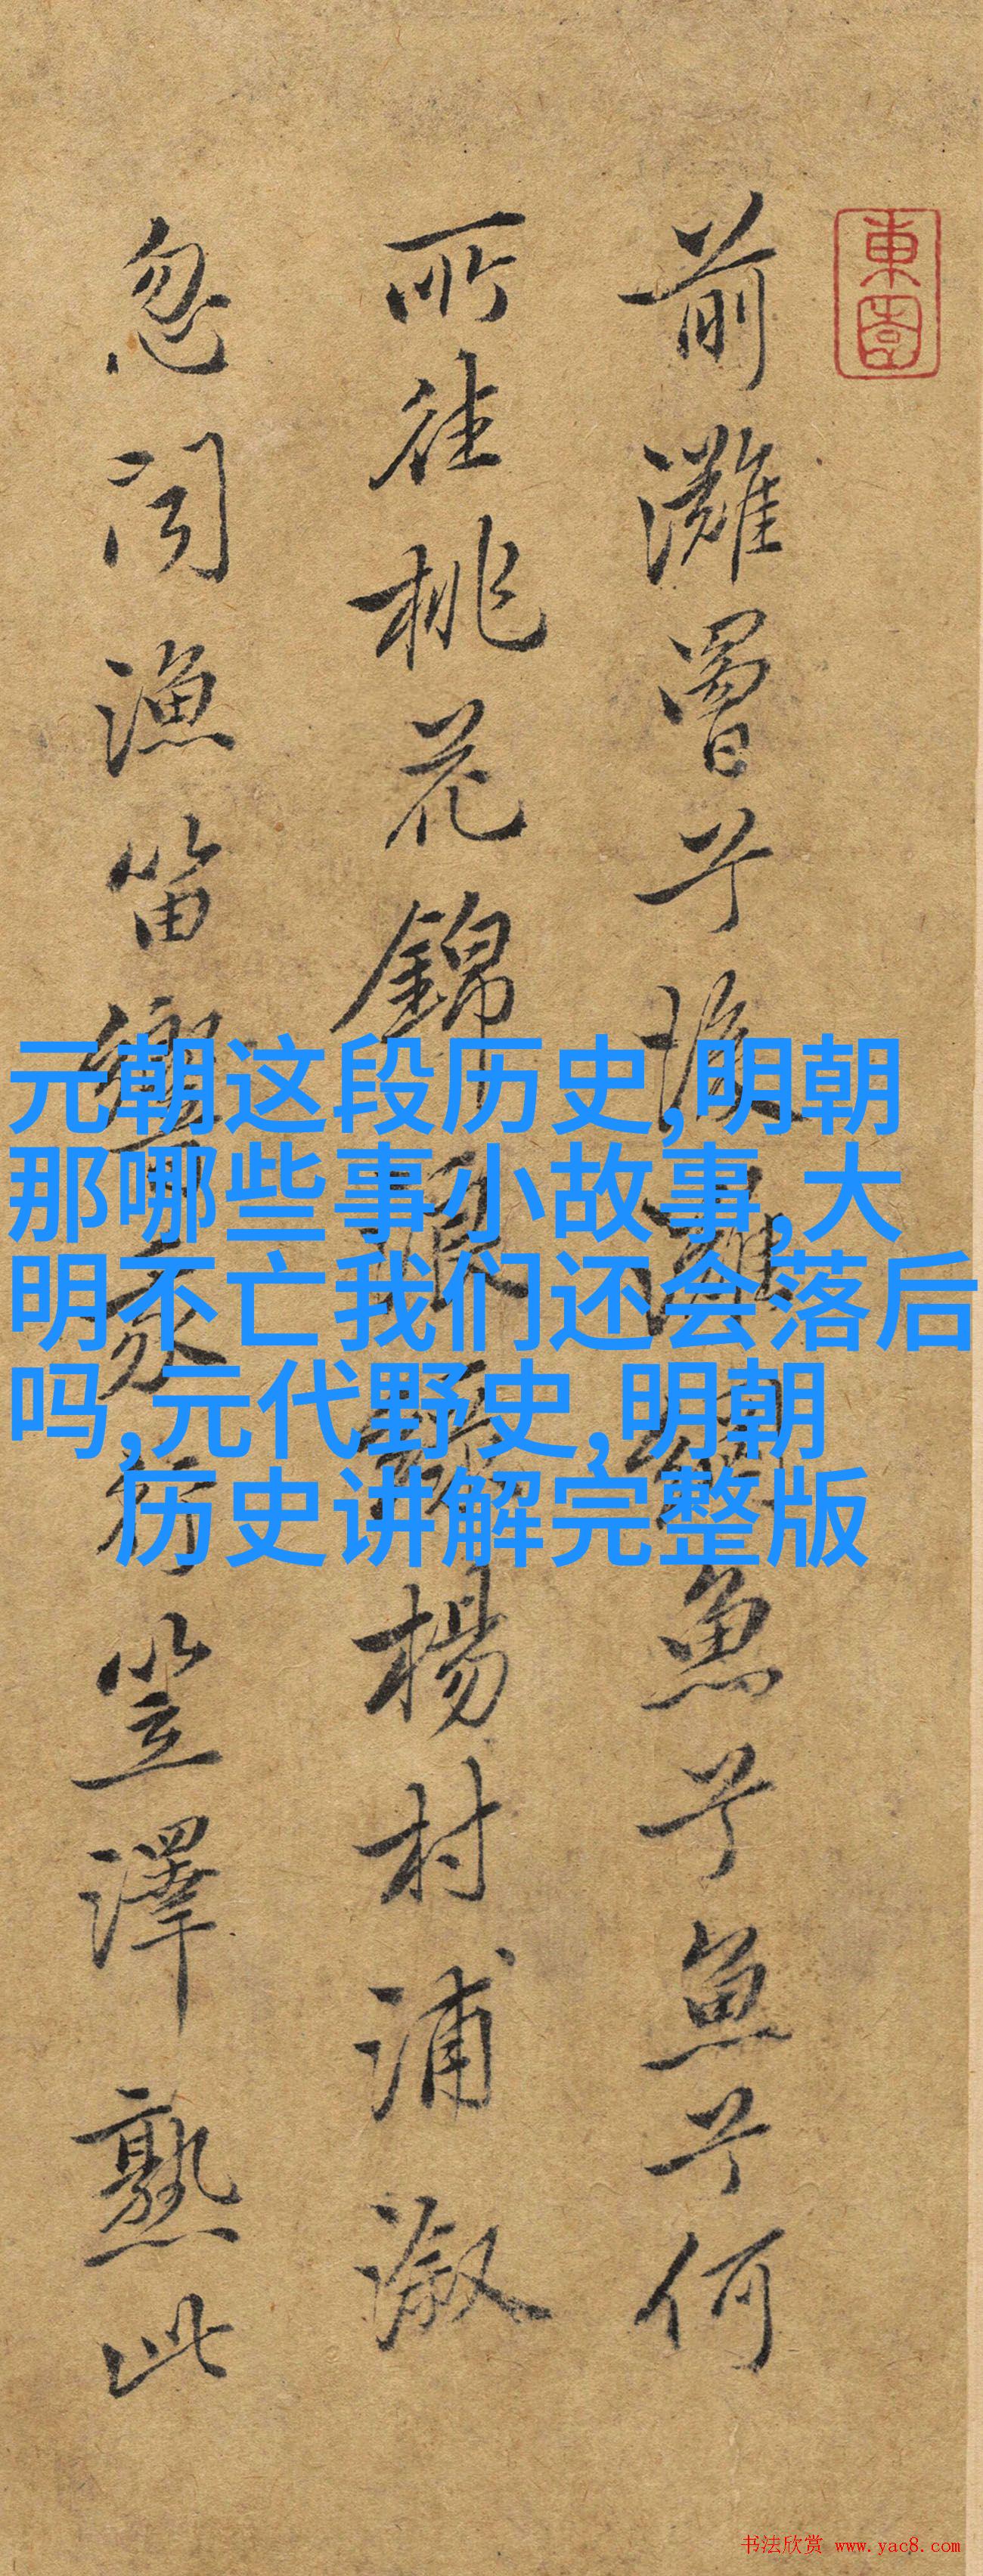 前灘罾兮後灘網魚兮魚兮何
所往桃花錦浪綠楊村浦漵
忽聞漁笛響我行笠澤熟此
元朝这段历史,明朝
那哪些事小故事,大
明不亡我们还会落后
吗,元代野史,明朝
历史讲解完整版
书法欣赏 www.yac8.com